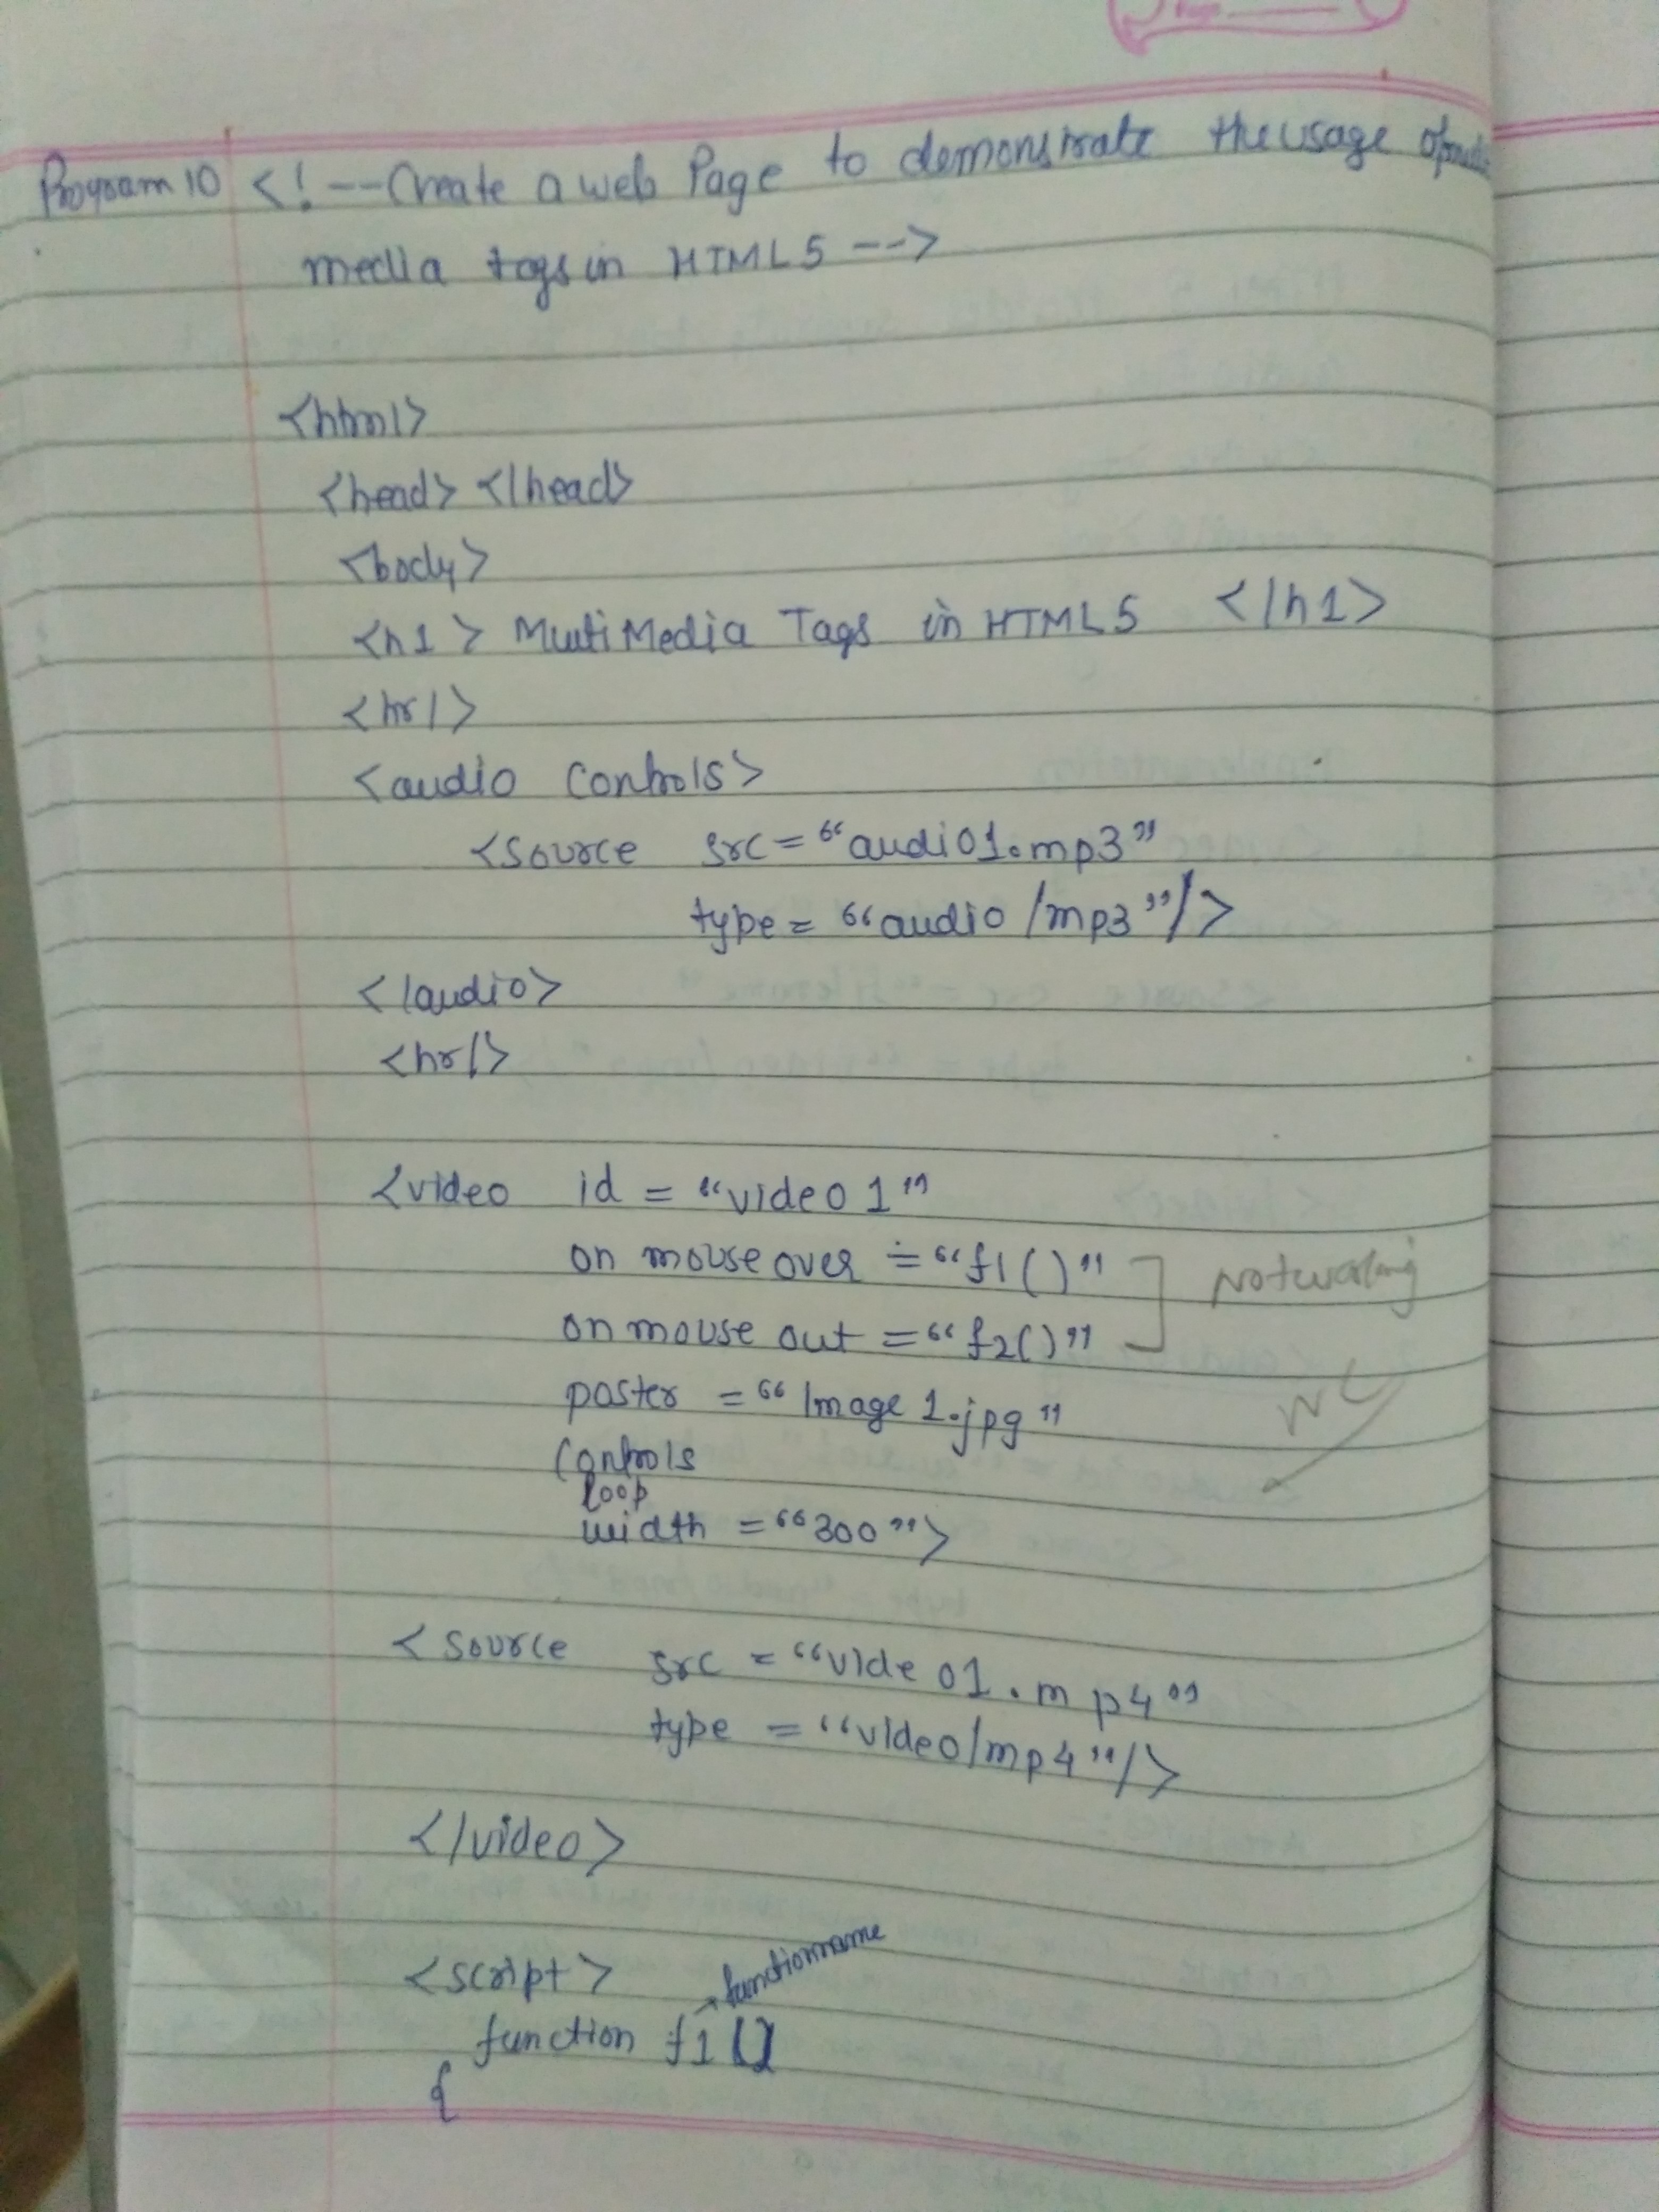 Program 10 <!--Create a web Page to demonstrate the usage of
media tags in HTML5 -->
<html>
<head> </head>
<body>
<h1> MultiMedia Tags in HTML5 </h1>
<hr/>
<audio controls>
<source src="audio1.mp3"
type="audio/mp3"/>
</audio>
<hr/>
<video id="video1"
on mouse over="f1()"
on mouse out="f2()"
Not working
poster="Image1.jpg"
NC
controls
loop
width="300">
<source src="video1.mp4"
type="video/mp4"/>
</video>
<script>
functionname
function f1()
{